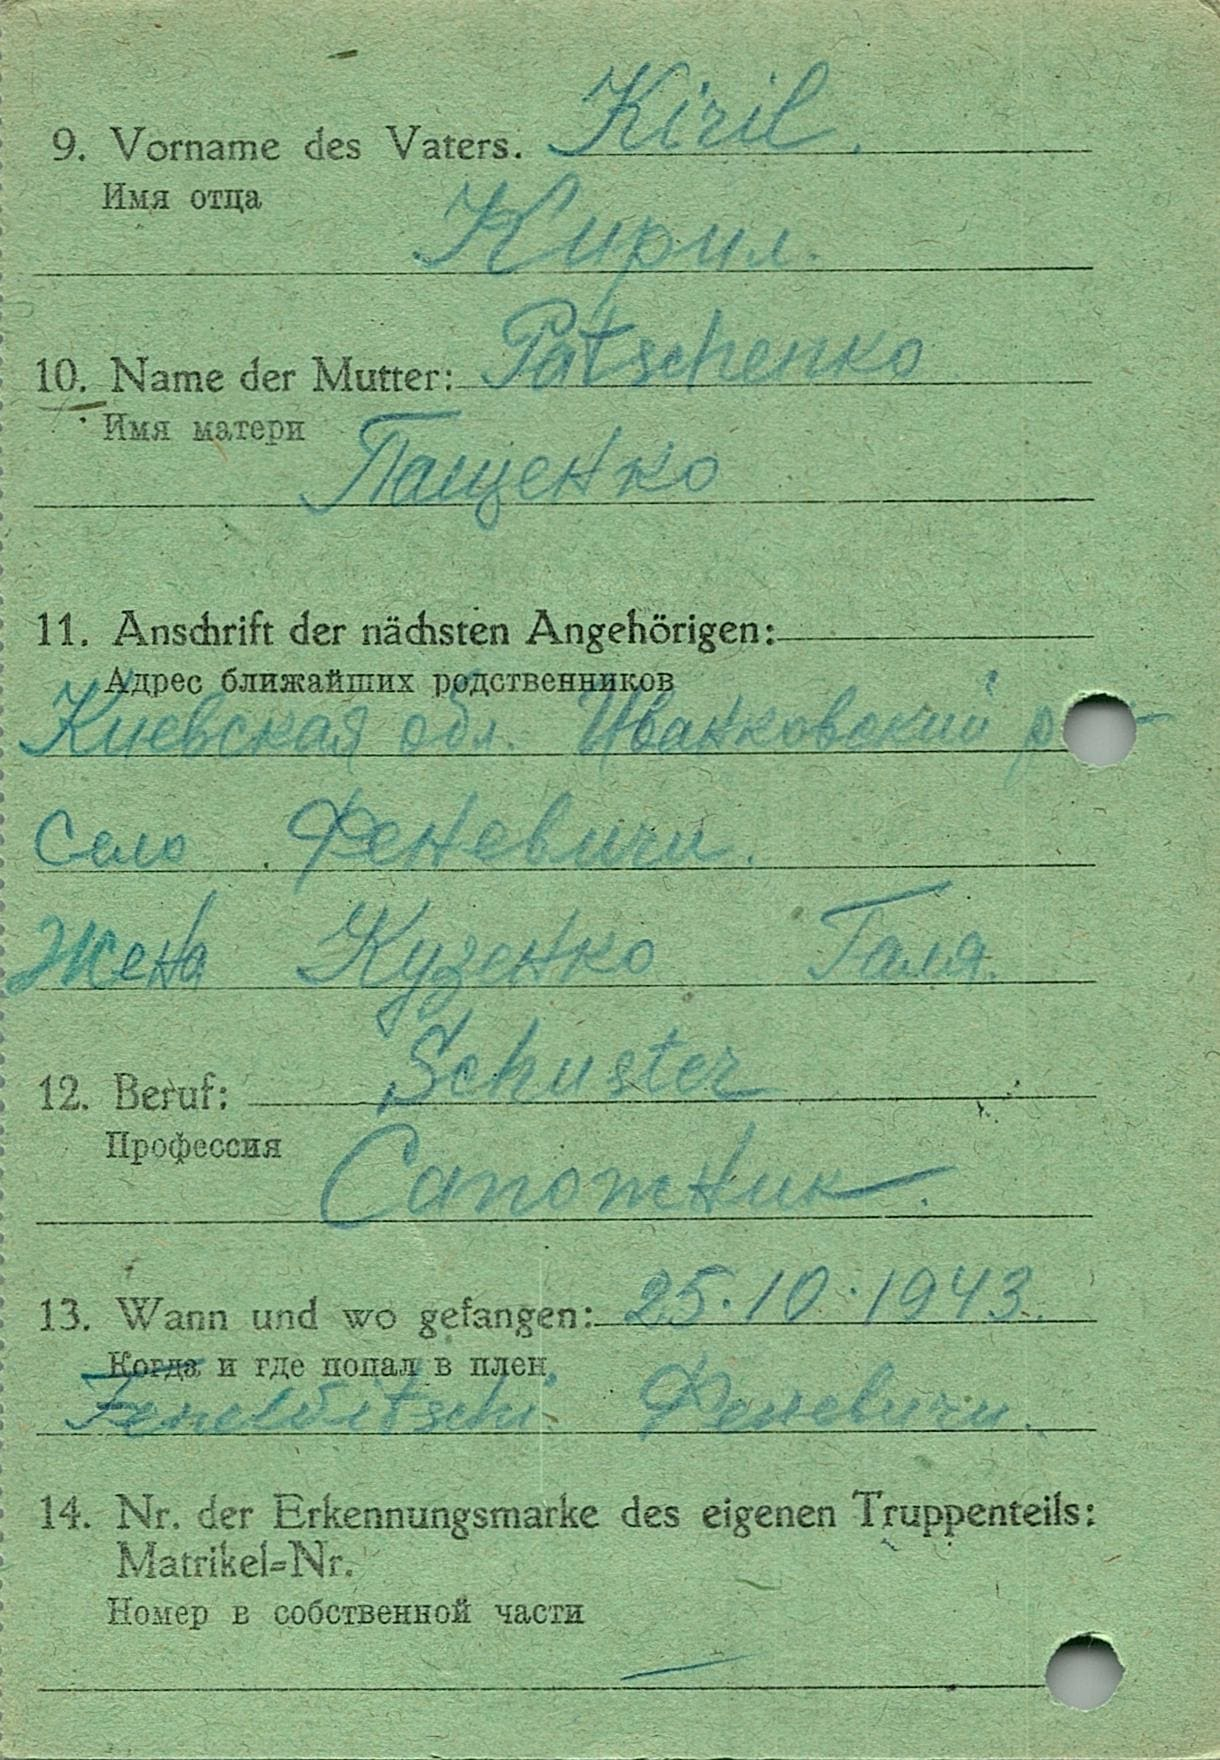 9. Vorname des Vaters. Kiril.
Имя отца
Кирил.
10. Name der Mutter: Patschenko
Имя матери
Пащенко
11. Anschrift der nächsten Angehörigen:
Адрес ближайших родственников
Киевская обл. Иванковский р
Село Феневичи.
Жена Кузенко Галя.
12. Beruf: Schuster
Профессия
Сапожник.
13. Wann und wo gefangen: 25.10.1943.
Когда и где попал в плен
Fenewitschi. Феневичи.
14. Nr. der Erkennungsmarke des eigenen Truppenteils:
Matrikel=Nr.
Номер в собственной части
—